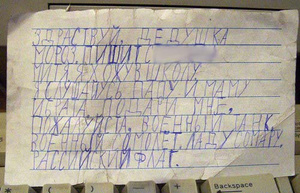 ЗДРАСТУЙ. ДЕДУШКА
МОРОЗ. ПИШИТ
Я ХОЖУ В ШКОЛУ
И СЛУШАЮСЬ ПАПУ И МАМУ
ПОДАРИ МНЕ,
ПОЖАЛУЙСТА, ВОЕННЫЙ ТАНК
ВОЕННЫЙ САМОЛЕТ ЛАДУ
РАССИЙСКИЙ ФЛАГ.
Backspace